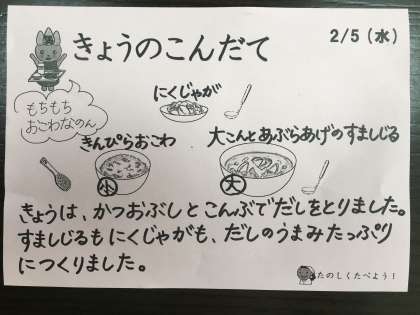 きょうのこんだて
2/5（水）
もちもち
おこわなのん
にくじゃが
きんぴらおこわ
大こんとあぶらあげのすましじる
小
大
きょうは、かつおぶしとこんぶでだしをとりました。
すましじるもにくじゃがも、だしのうまみたっぷり
につくりました。
たのしくたべよう！